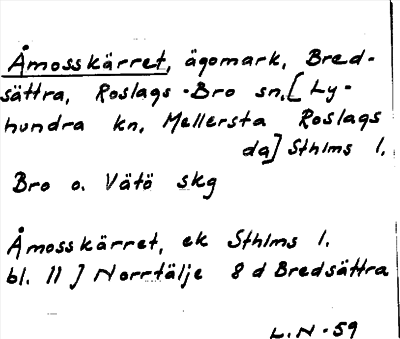 Åmosskärret, ägomark, Bred-
sättra, Roslags-Bro sn, [Ly-
hundra kn, Mellersta Roslags
da] Sthlms l.
Bro o. Vätö skg
Åmosskärret, ek Sthlms l.
bl. 11 J Norrtälje 8 d Bredsättra
L.N-59